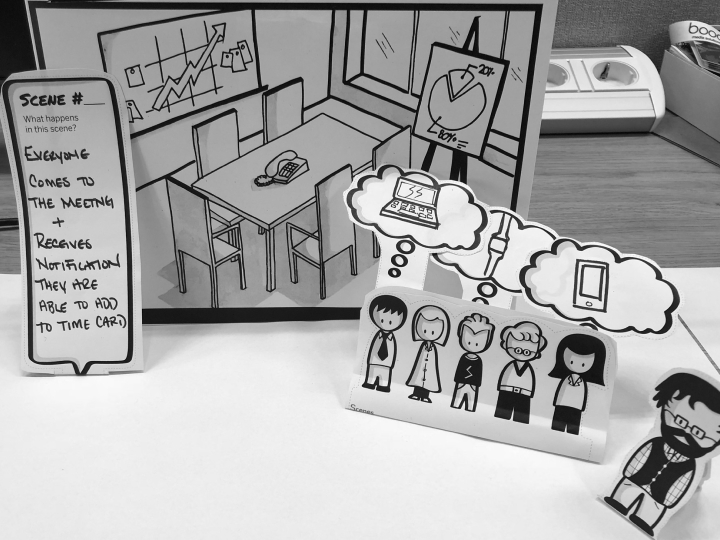 SCENE #__
What happens
in this scene?
EVERYONE
COMES TO
THE MEETNG
+
RECEIVES
NOTIFICATION
THEY ARE
ABLE TO ADD
TO TIME CARD
20%
80%
Scenes